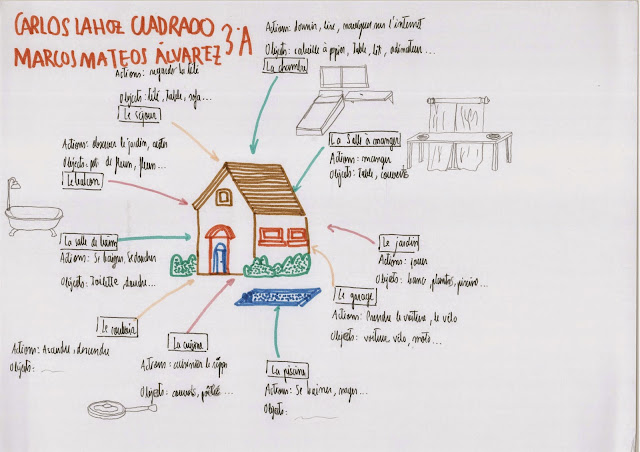 CARLOS LAHOZ CUADRADO
MARCOS MATEOS ÁLVAREZ 3ºA
Actions: dormir, lire, l'internet
Objets: à papier, table, lit, ordinateur...
La chambre
Actions: regarder la télé
Objets: télé, table, sofa...
Le séjour
La Salle à manger
Actions: manger
Objets: table, couverts
Actions: observer le jardin,
Objets: pot de fleurs, fleurs...
Le balcon
La salle de bains
Actions: Se baigner, se doucher
Objets: Toilette, douche...
Le jardin
Actions: jouer
Objets: banc, plantes, piscine...
Le garage
Actions: Prendre la voiture, le vélo
Objets: voiture, vélo, moto...
Le couloir
Actions: descendre
Objets:
La cuisine
Actions: cuisinier le
Objets: couverts,
La piscine
Actions: Se baigner, nager...
Objets: